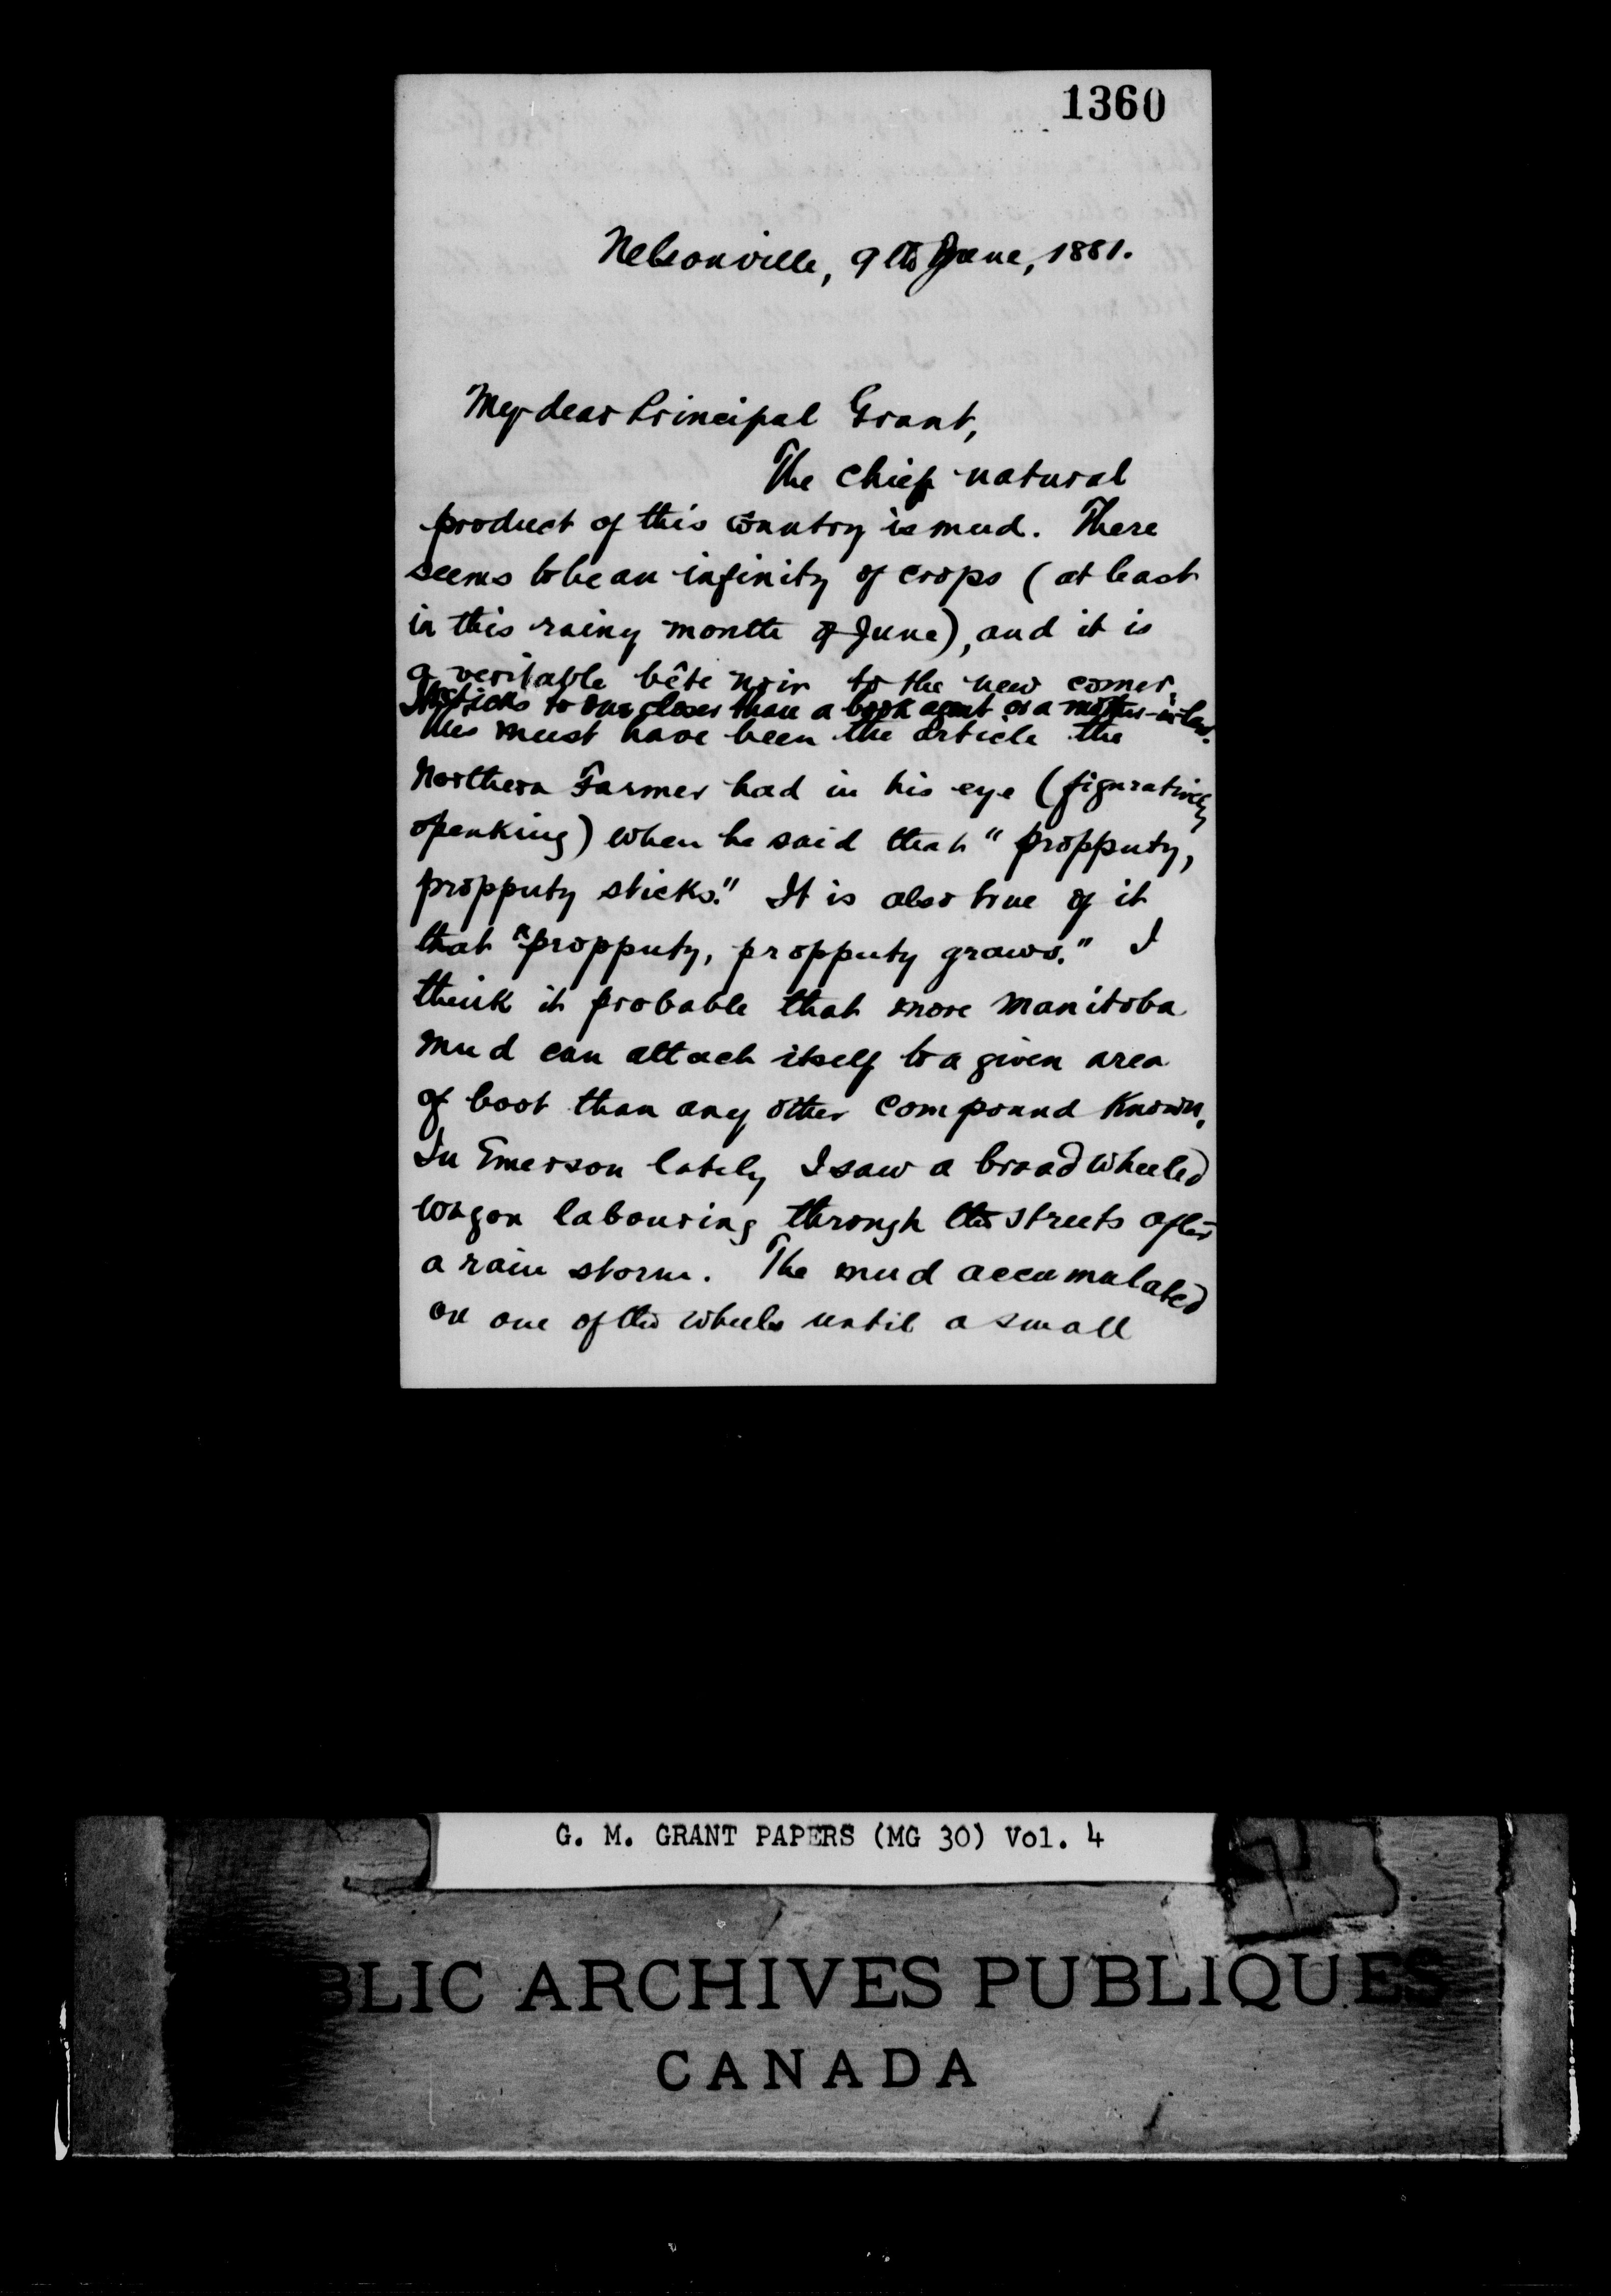 1360
Nelsonville, 9th June, 1881.
My dear Principal Grant,
The chief natural
product of this country is mud. There
seems to be an infinity of crops (at least
in this rainy month of June), and it is
a veritable bête noir to the new comer.
It sticks to one closer than a book agent or a mother-in-law.
This must have been the article the
Northern Farmer had in his eye (figuratively
speaking) when he said that "propputy,
propputy sticks." It is also true of it
that "propputy, propputy graws." I
think it probable that more Manitoba
mud can attach itself to a given area
of boot than any other compound known.
In Emerson lately I saw a broad wheeled
wagon labouring through the streets after
a rain storm. The mud accumulated
on one of the wheels until a small
G. M. GRANT PAPERS (MG 30) Vol. 4
BLIC ARCHIVES PUBLIQUES
CANADA